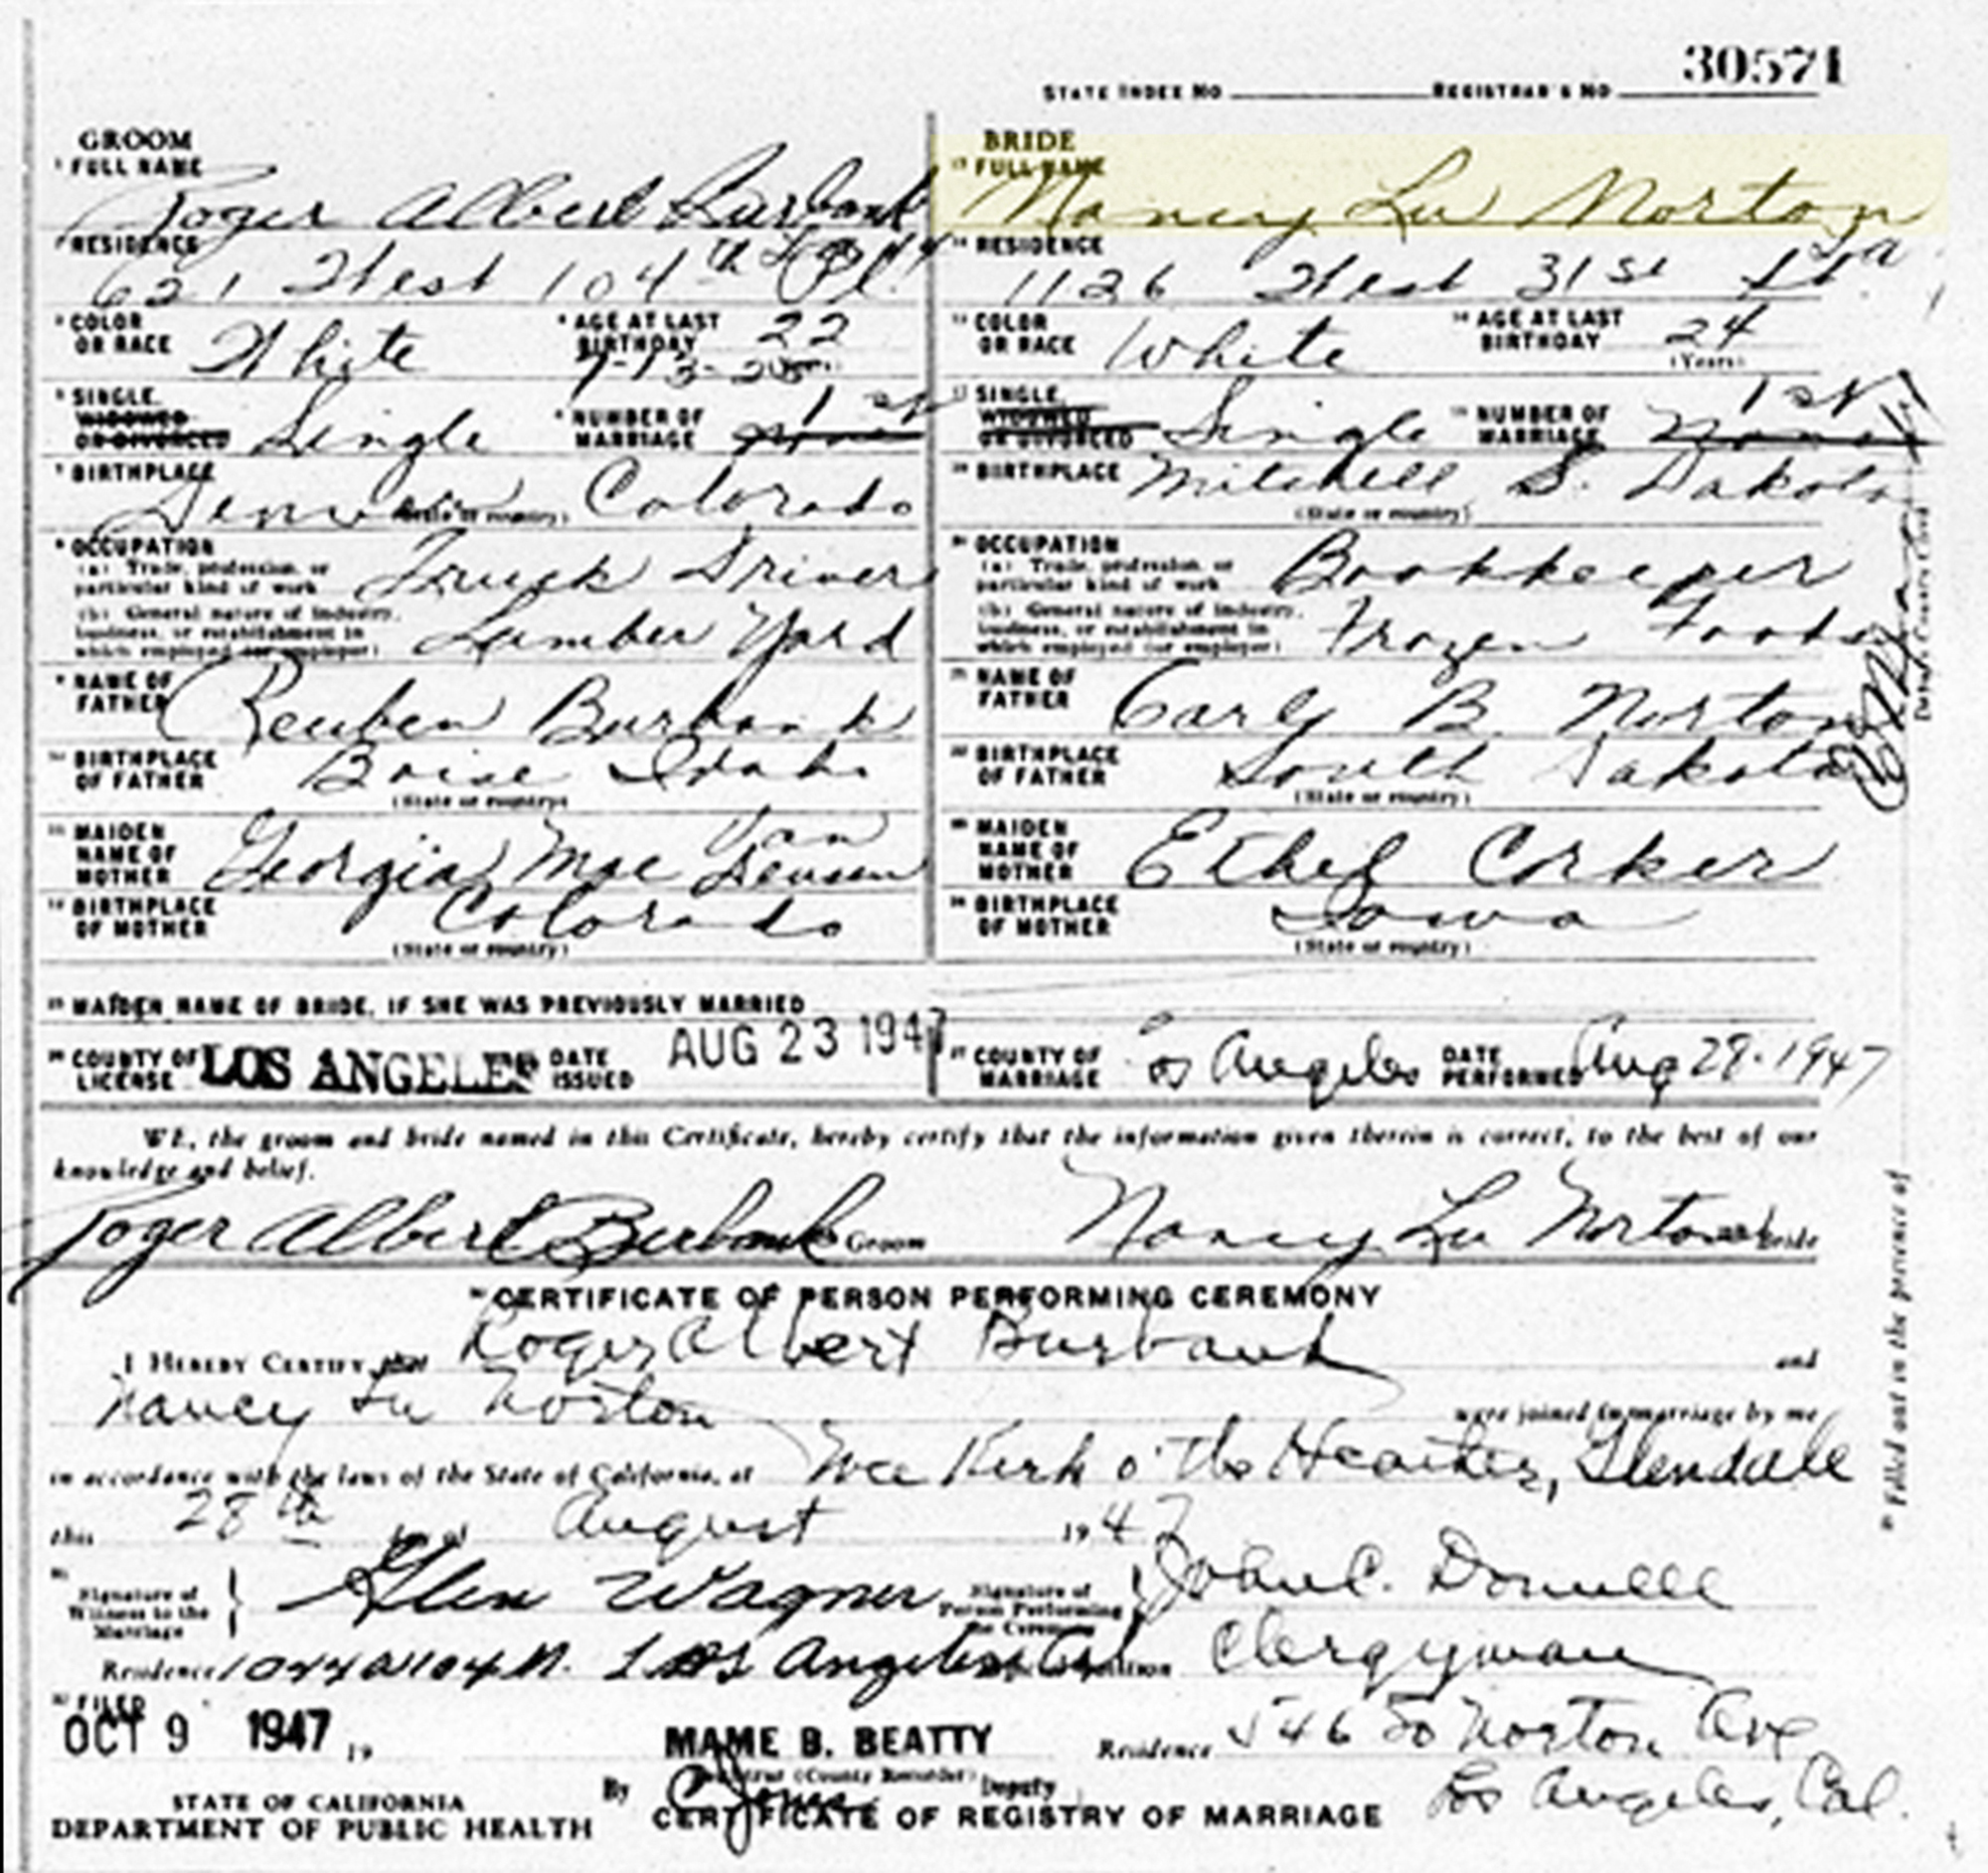 30571
STATE INDEX NO. REGISTRAR'S NO.
GROOM
1 FULL NAME
Roger Albert Burbank
2 RESIDENCE
621 West 104th Pl.
3 COLOR OR RACE White 4 AGE AT LAST BIRTHDAY 22
5 SINGLE, WIDOWED OR DIVORCED Single 6 NUMBER OF MARRIAGE 1st
7 BIRTHPLACE Denver Colorado
(State or country)
8 OCCUPATION
(a) Trade, profession, or particular kind of work Truck Driver
(b) General nature of industry, business, or establishment in which employed (or employer) Lumber Yard
9 NAME OF FATHER Reuben Burbank
10 BIRTHPLACE OF FATHER Boise Idaho
(State or country)
11 MAIDEN NAME OF MOTHER Georgia Mae Van
12 BIRTHPLACE OF MOTHER Colorado
(State or country)
BRIDE
13 FULL NAME
Nancy Lu Norton
14 RESIDENCE
1126 West 31st St
15 COLOR OR RACE White 16 AGE AT LAST BIRTHDAY 24
(Years)
17 SINGLE, WIDOWED OR DIVORCED Single 18 NUMBER OF MARRIAGE None 1st
19 BIRTHPLACE Mitchell S. Dakota
(State or country)
20 OCCUPATION
(a) Trade, profession, or particular kind of work Bookkeeper
(b) General nature of industry, business, or establishment in which employed (or employer) Frozen Foods
21 NAME OF FATHER B. Norton
22 BIRTHPLACE OF FATHER South Dakota
(State or country)
23 MAIDEN NAME OF MOTHER Ethel Corker
24 BIRTHPLACE OF MOTHER Iowa
(State or country)
25 MAIDEN NAME OF BRIDE, IF SHE WAS PREVIOUSLY MARRIED
26 COUNTY OF LICENSE LOS ANGELES DATE ISSUED AUG 23 1947
27 COUNTY OF MARRIAGE Los Angeles DATE PERFORMED Aug 28-1947
WE, the groom and bride named in this Certificate, hereby certify that the information given therein is correct, to the best of our
knowledge and belief.
Roger Albert Burbank Groom Nancy Lu Norton Bride
CERTIFICATE OF PERSON PERFORMING CEREMONY
I HEREBY CERTIFY that Roger Albert Burbank and
Nancy Lu Norton were joined in marriage by me
in accordance with the laws of the State of California, at Wee Kirk o' the Heather, Glendale
this 28th day of August 1947
Signature of Witness to the Marriage Glen Wagner Signature of Person Performing the Ceremony John C. Donnell
Residence Los Angeles Cal Official position Clergyman
FILED
OCT 9 1947, 19
MAME B. BEATTY
Registrar (County Recorder)
By Deputy
Residence 546 So Norton Ave
Los Angeles, Cal.
STATE OF CALIFORNIA
DEPARTMENT OF PUBLIC HEALTH
CERTIFICATE OF REGISTRY OF MARRIAGE
Filled out in the presence of
Deputy County Clerk